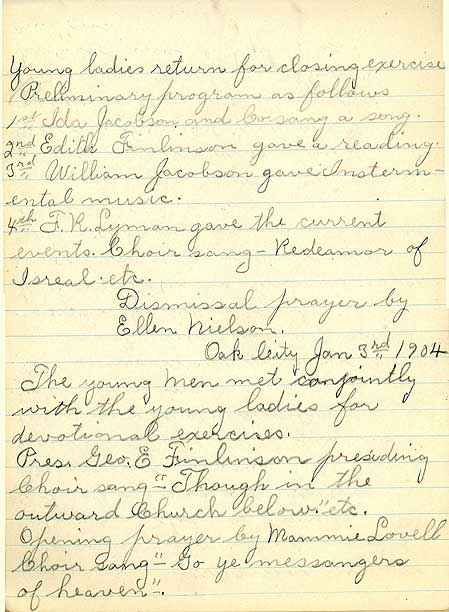 Young ladies return for closing exercise
Preliminary program as follows
1st Ida Jacobson and Co sang a song.
2nd Edith Finlinson gave a reading.
3rd William Jacobson gave Insterm-
ental music.
4th F. R. Lyman gave the current
events. Choir sang - Redeamor of
Isreal. etc.
Dismissal prayer by
Ellen Nielson.
Oak City Jan 3rd 1904
The young men met conjointly
with the young ladies for
devotional exercises.
Pres. Geo. E Finlinson presiding
Choir sang "Though in the
outward Church below." etc.
Opening prayer by Mammie Lovell
Choir sang "Go ye messangers
of heaven".